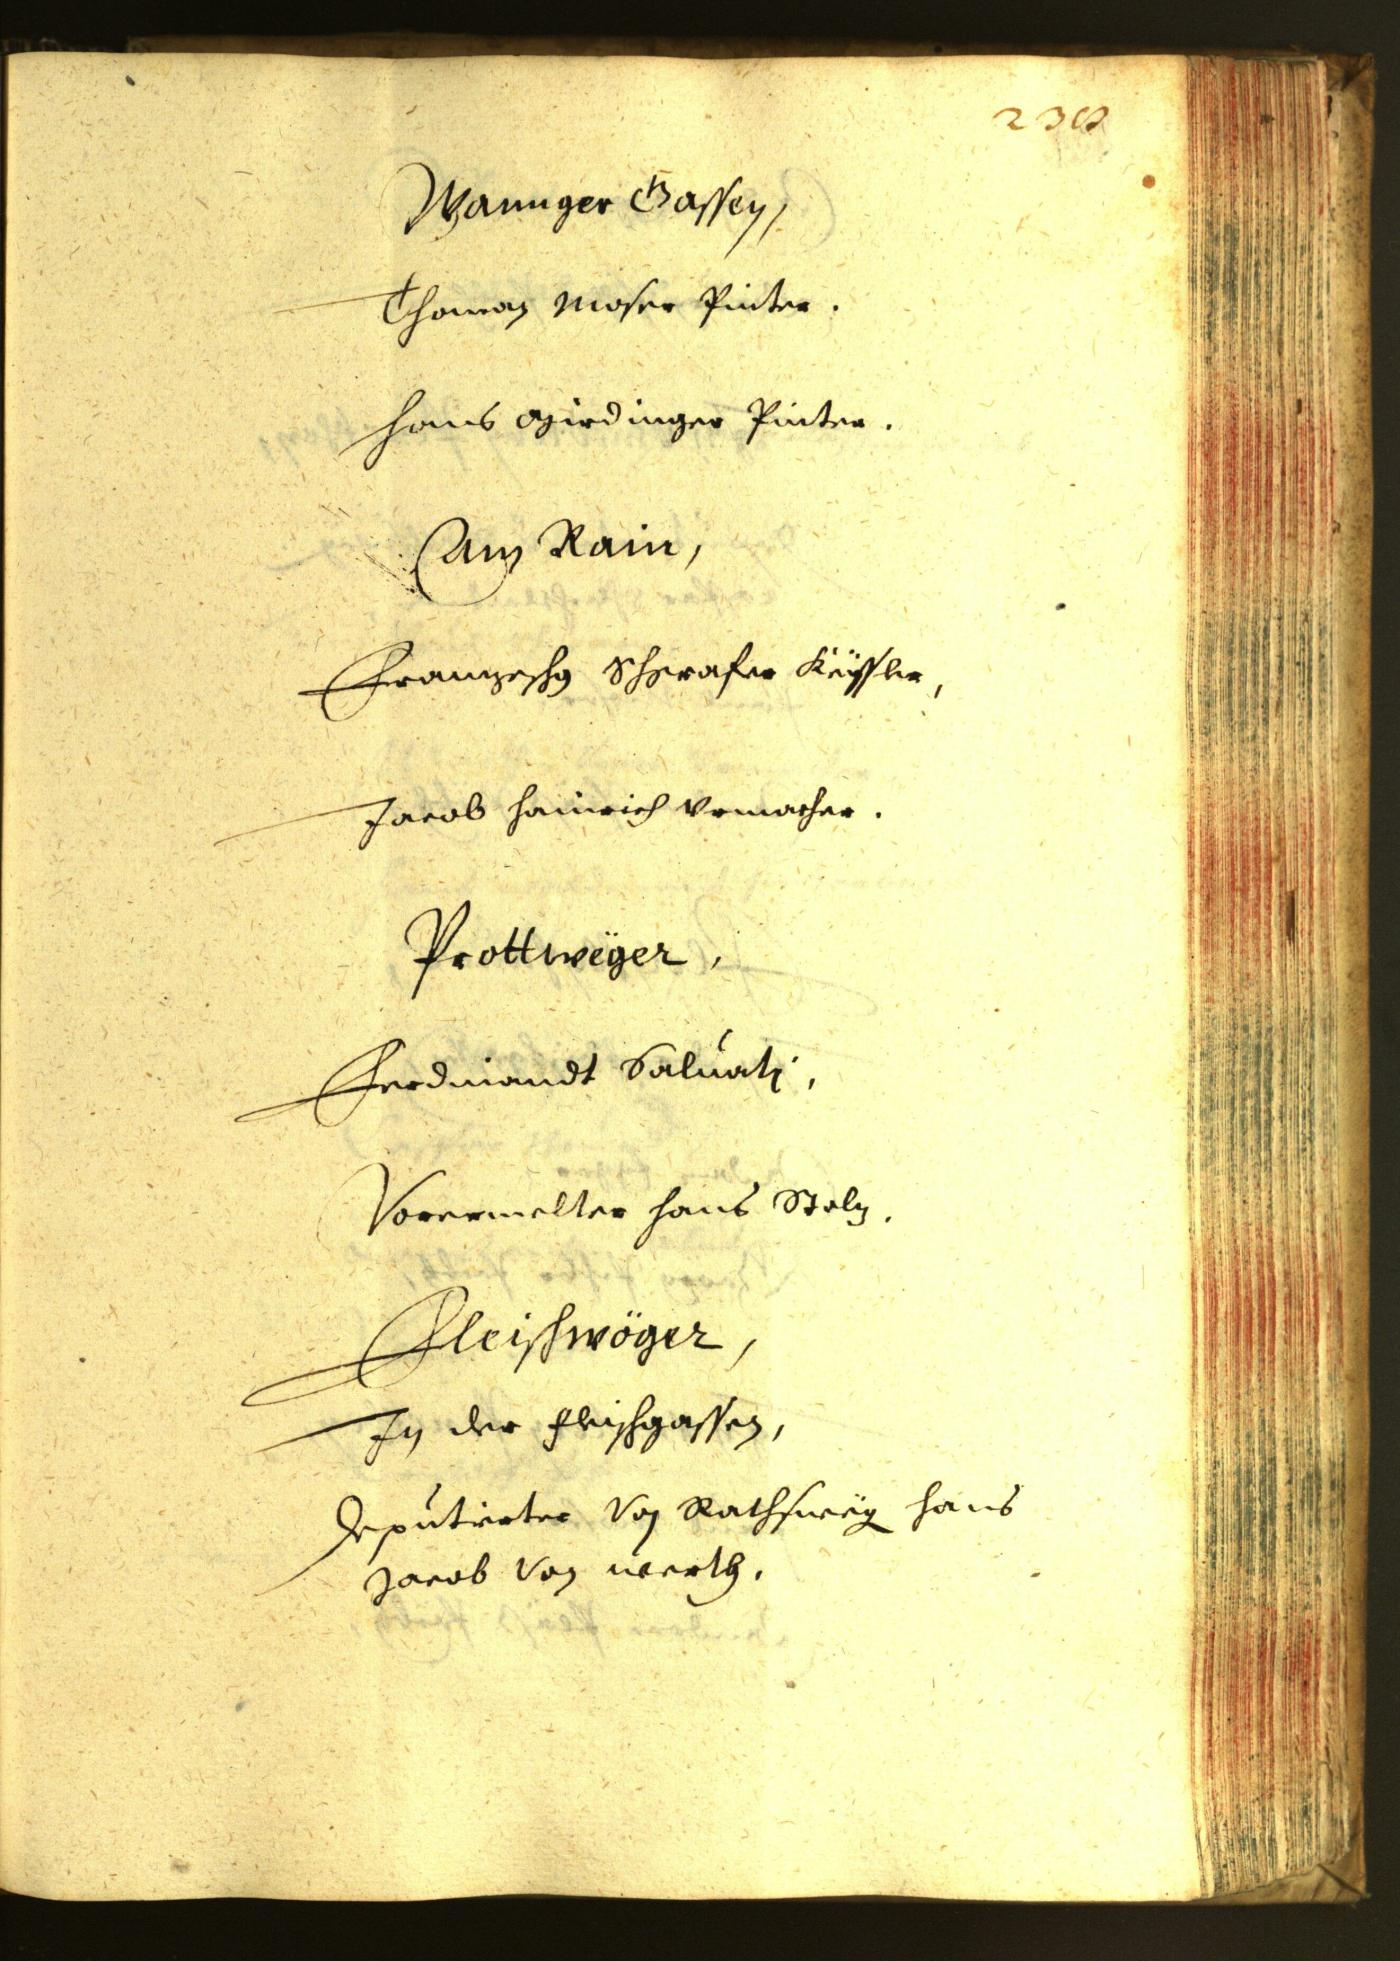 Wannger Gassen,
Thoman Moser Pinter.
Hans Girdinger Pinter.
Am Rain,
Franzesch Schgrafer Keÿssler,
Jacob Hainrich Vrmacher.
Prottwëger,
Ferdinandt Saluati,
Vorermelter Hans Stolz.
Fleischwöger,
In der Fleischgassen,
Deputierter von Rathsweg Hans
Jacob von Werth.